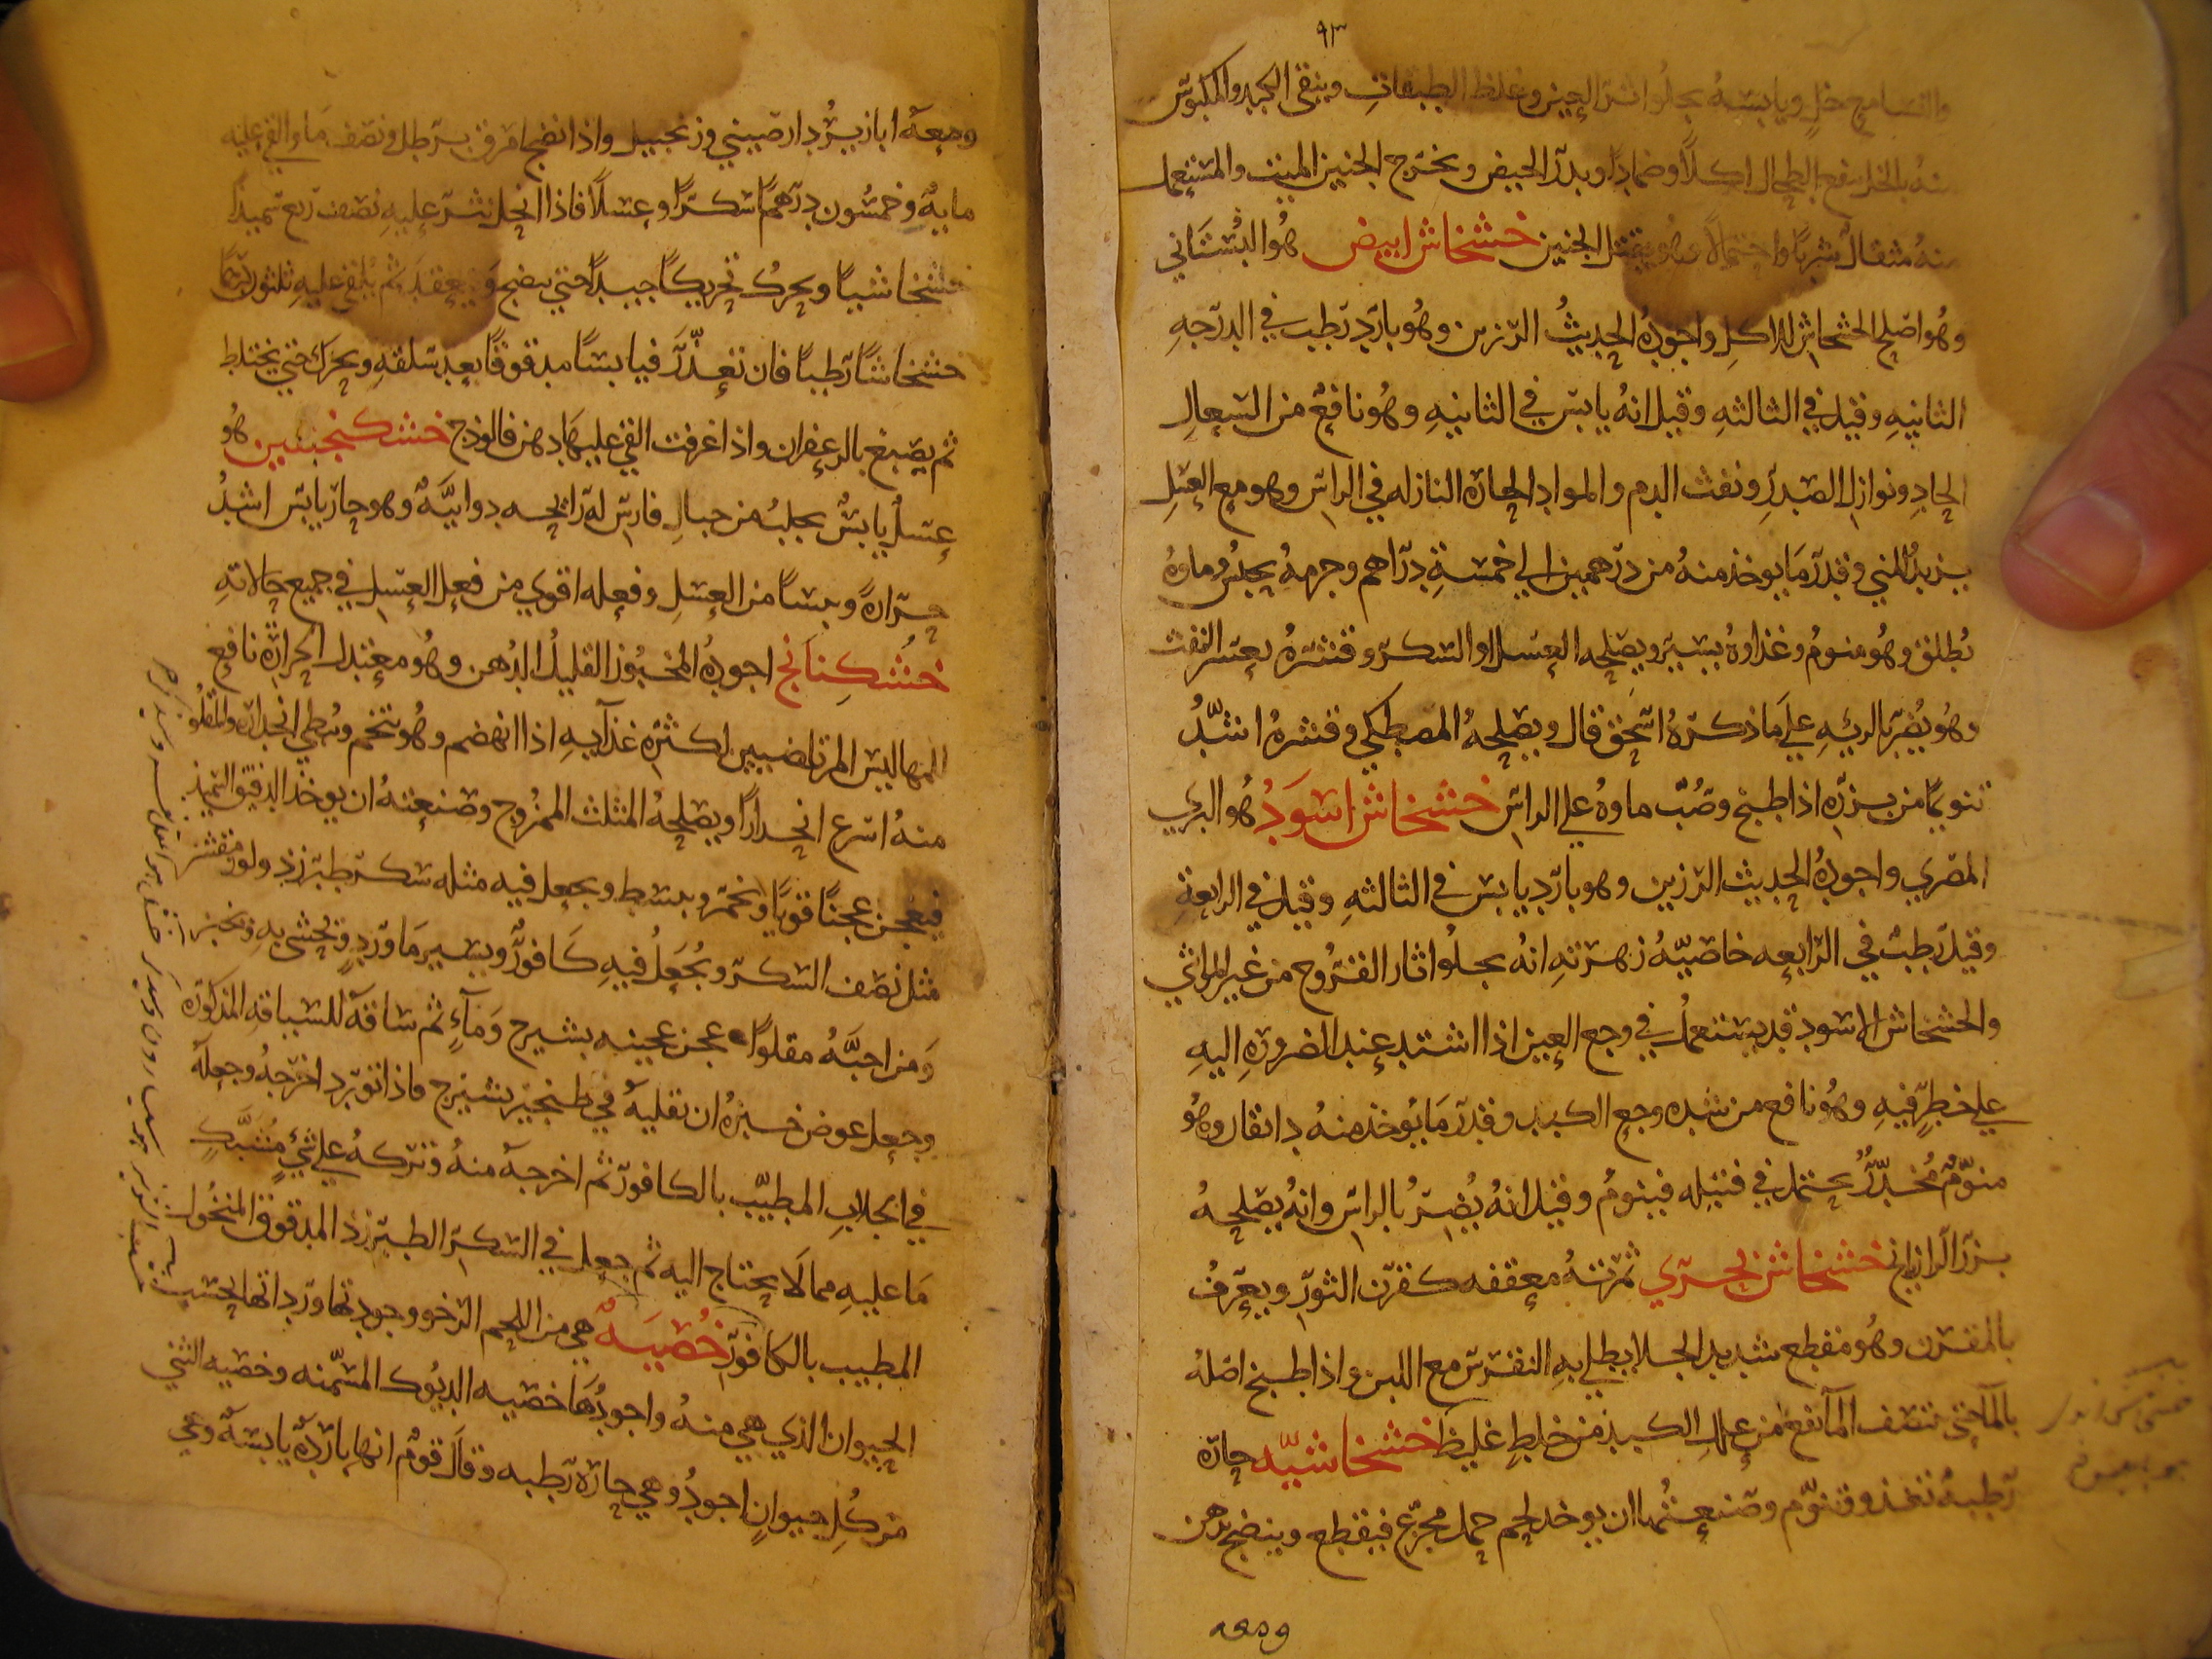 ٩٣
والتسامح خل ويابسه يجلوا اثر العين وغلظ الطبقات وينقى الكبد والمكبوس
منه بالخل ينفع الطحال اكلاً وضماداً ويدر الحيض ويخرج الجنين الميت والمستعمل
منه مثقال شرباً واحتمالاً وهو يقتل الجنين خشخاش ابيض هو البستاني
وهو اصلح الخشخاش للاكل واجوده الحديث الرزين وهو بارد رطب في الدرجه
الثانيه وقيل في الثالثه وقيل انه يابس في الثانيه وهو نافع من السعال
الحاد ونوازل الصدر ونفث الدم والمواد الحاره النازله في الراس وهو مع العسل
يزيد المني وقدر ما يوخذ منه من درهمين الى خمسة دراهم وجرمه يحبس وماوه
يطلق وهو منوم وغذاوه يسير ويصلحه العسل او السكر وقشره يعسر النفث
وهو يضر بالريه على ما ذكره اسحق قال ويصلحه المصطكي وقشره اشد
تنويماً من بزره اذا طبخ وصب ماوه على الراس خشخاش اسود هو البري
المصري واجوده الحديث الرزين وهو بارد يابس في الثالثه وقيل في الرابعة
وقيل رطب في الرابعه خاصيه زهرته انه يجلوا اثار القروح من غير المواشي
والخشخاش الاسود قد يستعمل في وجع العين اذا اشتد عند الضروره اليه
على خطر فيه وهو نافع من شده وجع الكبد وقدر ما يوخذ منه دانقان وهو
منوم مخدر يحتمل في فتيله فينوم وقيل انه يضر بالراس وانه يصلحه
بزر الرازيانج خشخاش بحري ثمرته معقفه كقرن الثور ويعرف
بالمقرن وهو مقطع شديد الجلا يطلى به النقرس مع اللبن واذا طبخ اصله
بالما حتى ينتصف الما نفع من علل الكبد من خلط غليظ خشخاشيه حاره
رطبه تغذو وتنوم وصنعتها ان يوخذ لحم حمل مجزع فيقطع وينضج بدهن
ومعه
ومعه ابازير دارصيني وزنجبيل واذا نضجا مرق برطل ونصف ما والقى عليه
مايه وخمسون درهماً سكراً وعسلاً فاذا انحل نثر عليه نصف ربع سميذاً
خشخاشياً ويحرك تحريكاً جيداً حتى ينضج وينعقد ثم يلقى عليه ثلثون درهماً
خشخاشاً رطباً فان تعذر فيابساً مدقوقاً بعد سلقه ويحرك حتى يختلط
ثم يصبغ بالزعفران واذا غرفت القي عليها دهن فالوذج خشكنجبين هو
عسل يابس يجلب من جبال فارس له رايحه دوائية وهو حار يابس اشد
حرارةً ويبساً من العسل وفعله اقوى من فعل العسل في جميع حالاته
خشكنانج اجوده المخبوز القليل الدهن وهو معتدل الحراره نافع
للمهاليس المرتاضيين لكثره غذآيه اذا انهضم وهو متخم وبطي انحداره والمقلو
منه اسرع انحداراً ويصلحه المثلث الممزوج وصنعته ان يوخذ الدقيق السميذ
فيعجن عجناً قوياً ويخمر ويبسط ويجعل فيه مثله سكر طبرزذ ولوز مقشر
مثل نصف السكر ويجعل فيه كافور ويسير ما ورد ويحشى به ويخبز
ومن احبه مقلواً عجن عجينه بشيرج ومآء ثم ساقه للسياقه المذكوره
وجعل عوض خبزه ان يقليه في طنجير بشيرج فاذا تورد اخرجه وجعله
في الجلاب المطيب بالكافور ثم اخرجه منه وتركه على شيء مشبك
ما عليه مما لا يحتاج اليه ثم جعل في السكر الطبرزذ المدقوق المنخول
المطيب بالكافور خصيه هي من اللحم الرخو وجودتها ورداتها بحسب
الحيوان الذي هي منه واجودها خصيه الديوك المسمنه وخصيه الفتي
من كل حيوان اجود وهي حاره رطبه وقال قوم انها بارده يابسه وهي